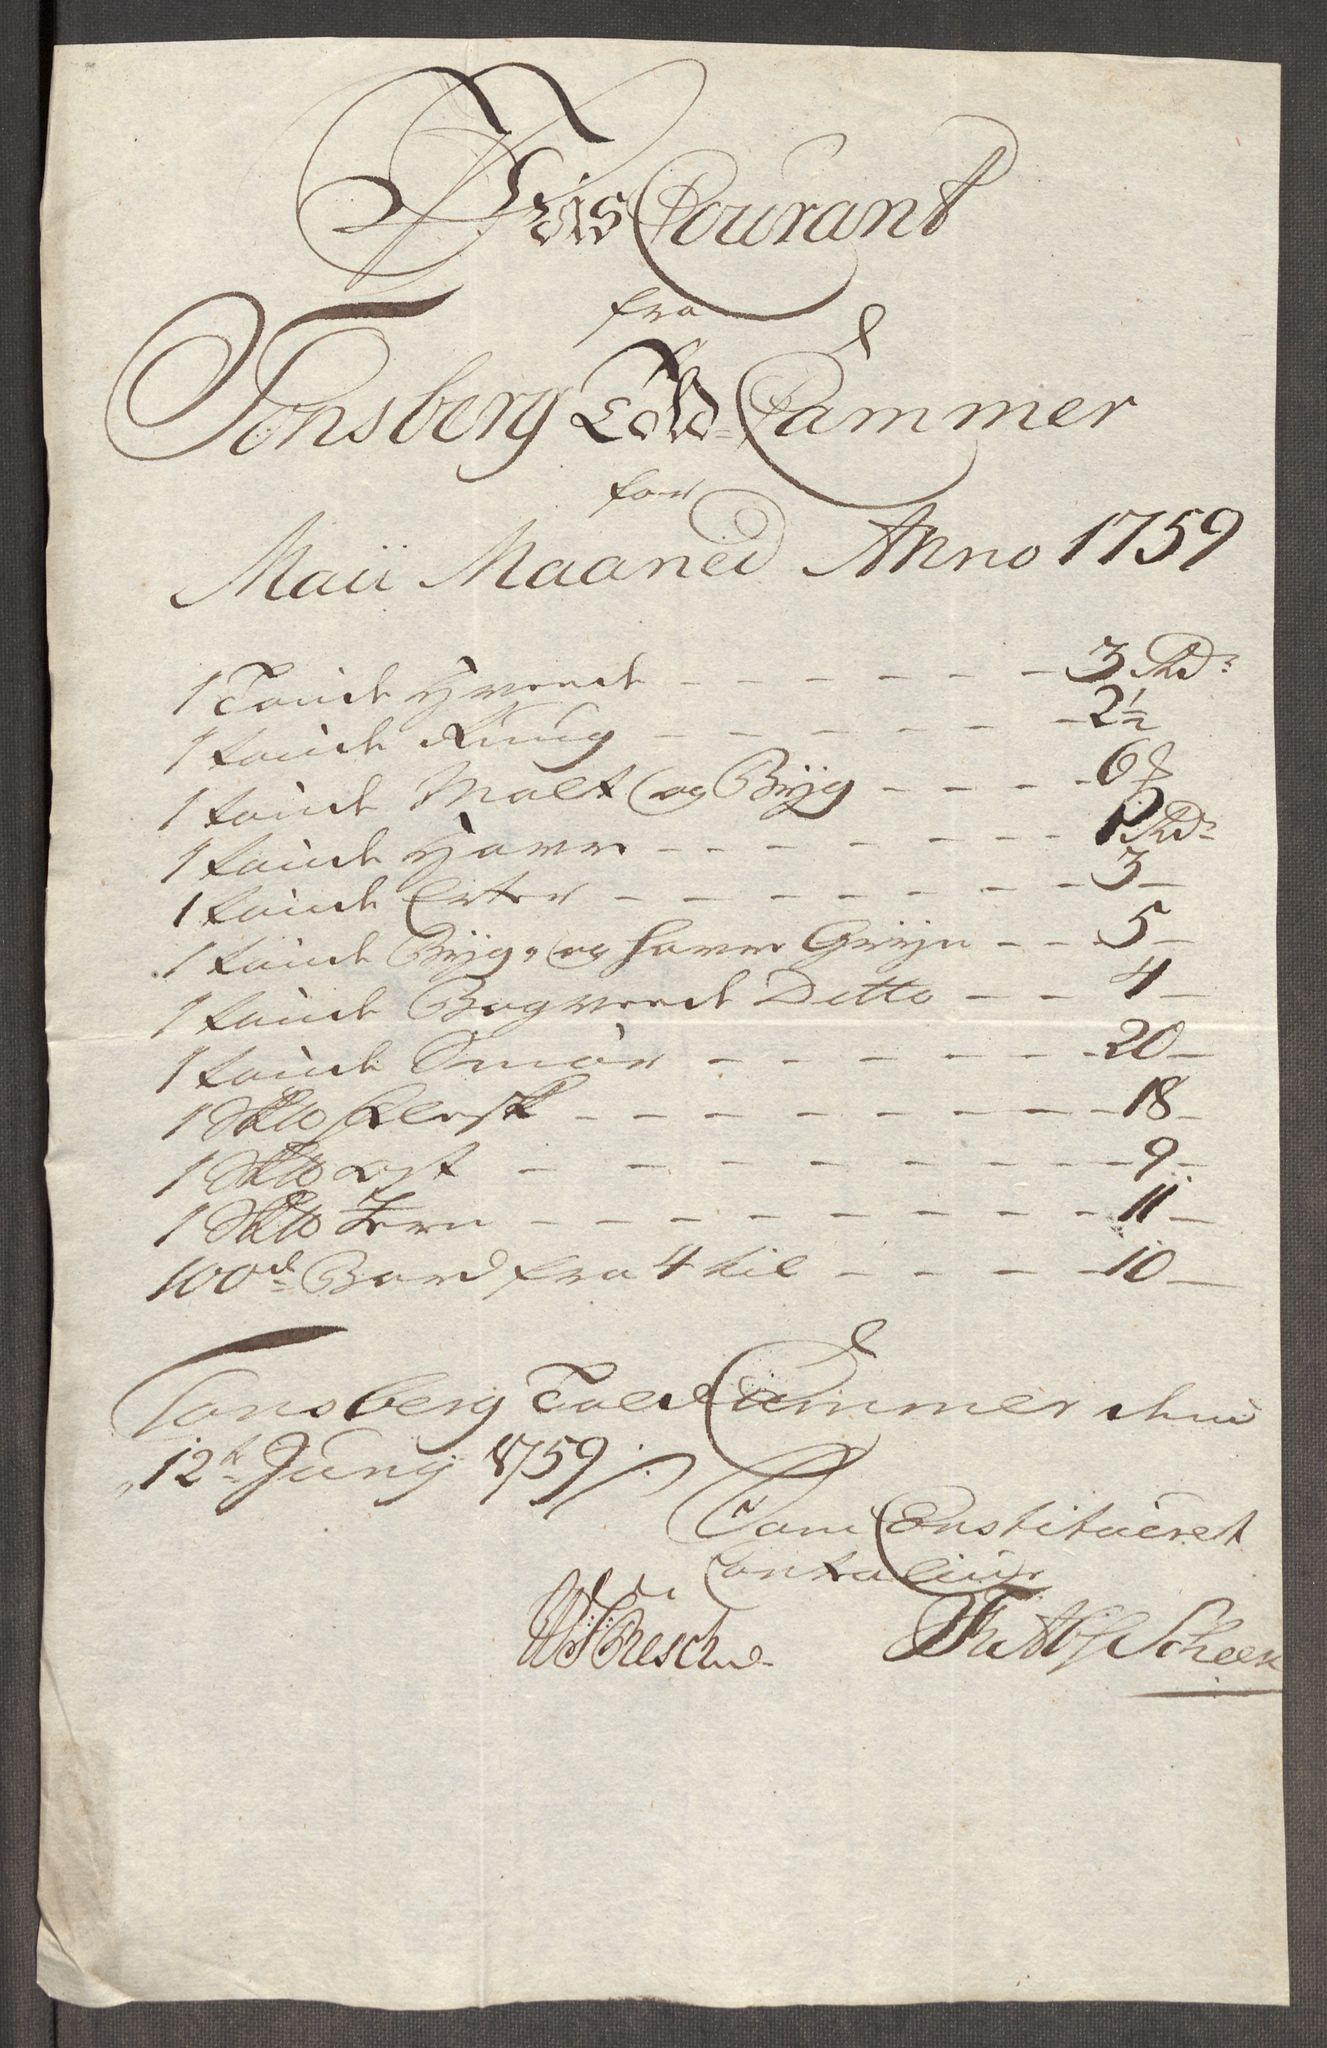 Pris Courant
fra
Tönsberg Told-Cammer
for
Maii Maaned Anno 1759
1 Tønde Hvede - - - - - - - 3 Rdr
1 tønde Ruug - - - - - - 2½
1 tønde Malt og Byg - - - - 6
1 tønde Havre - - - - - - - 1 Rdr
1 tønde Erter - - - - - - - 3 -
1 tønde Byg- og Havre Gryn - - 5 -
1 tønde Boghvede Ditto - - 4 -
1 tønde Smør - - - - - - 20 -
1 Sk℔ Flesk - - - - - - - - 18 -
1 Sk℔ Ost - - - - - - - - - 9 -
1 Sk℔ Jern - - - - - - - - 11 -
100d Bord fra 4 til - - - - 10 -
Tønsberg Told Cammer den
12te Juny 1759.
Som Constitueret
Controlleur
Scheen